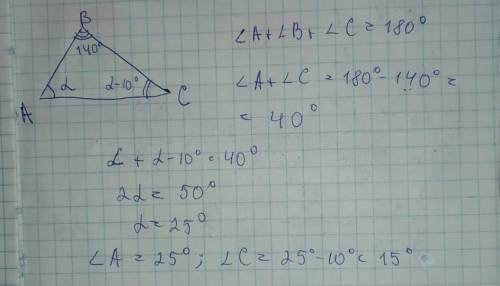 B
140°
α
α-10°
A
C
∠A+∠B+∠C=180°
∠A+∠C=180°-140°=
=40°
α+α-10°=40°
2α=50°
α=25°
∠A=25°; ∠C=25°-10°=15°